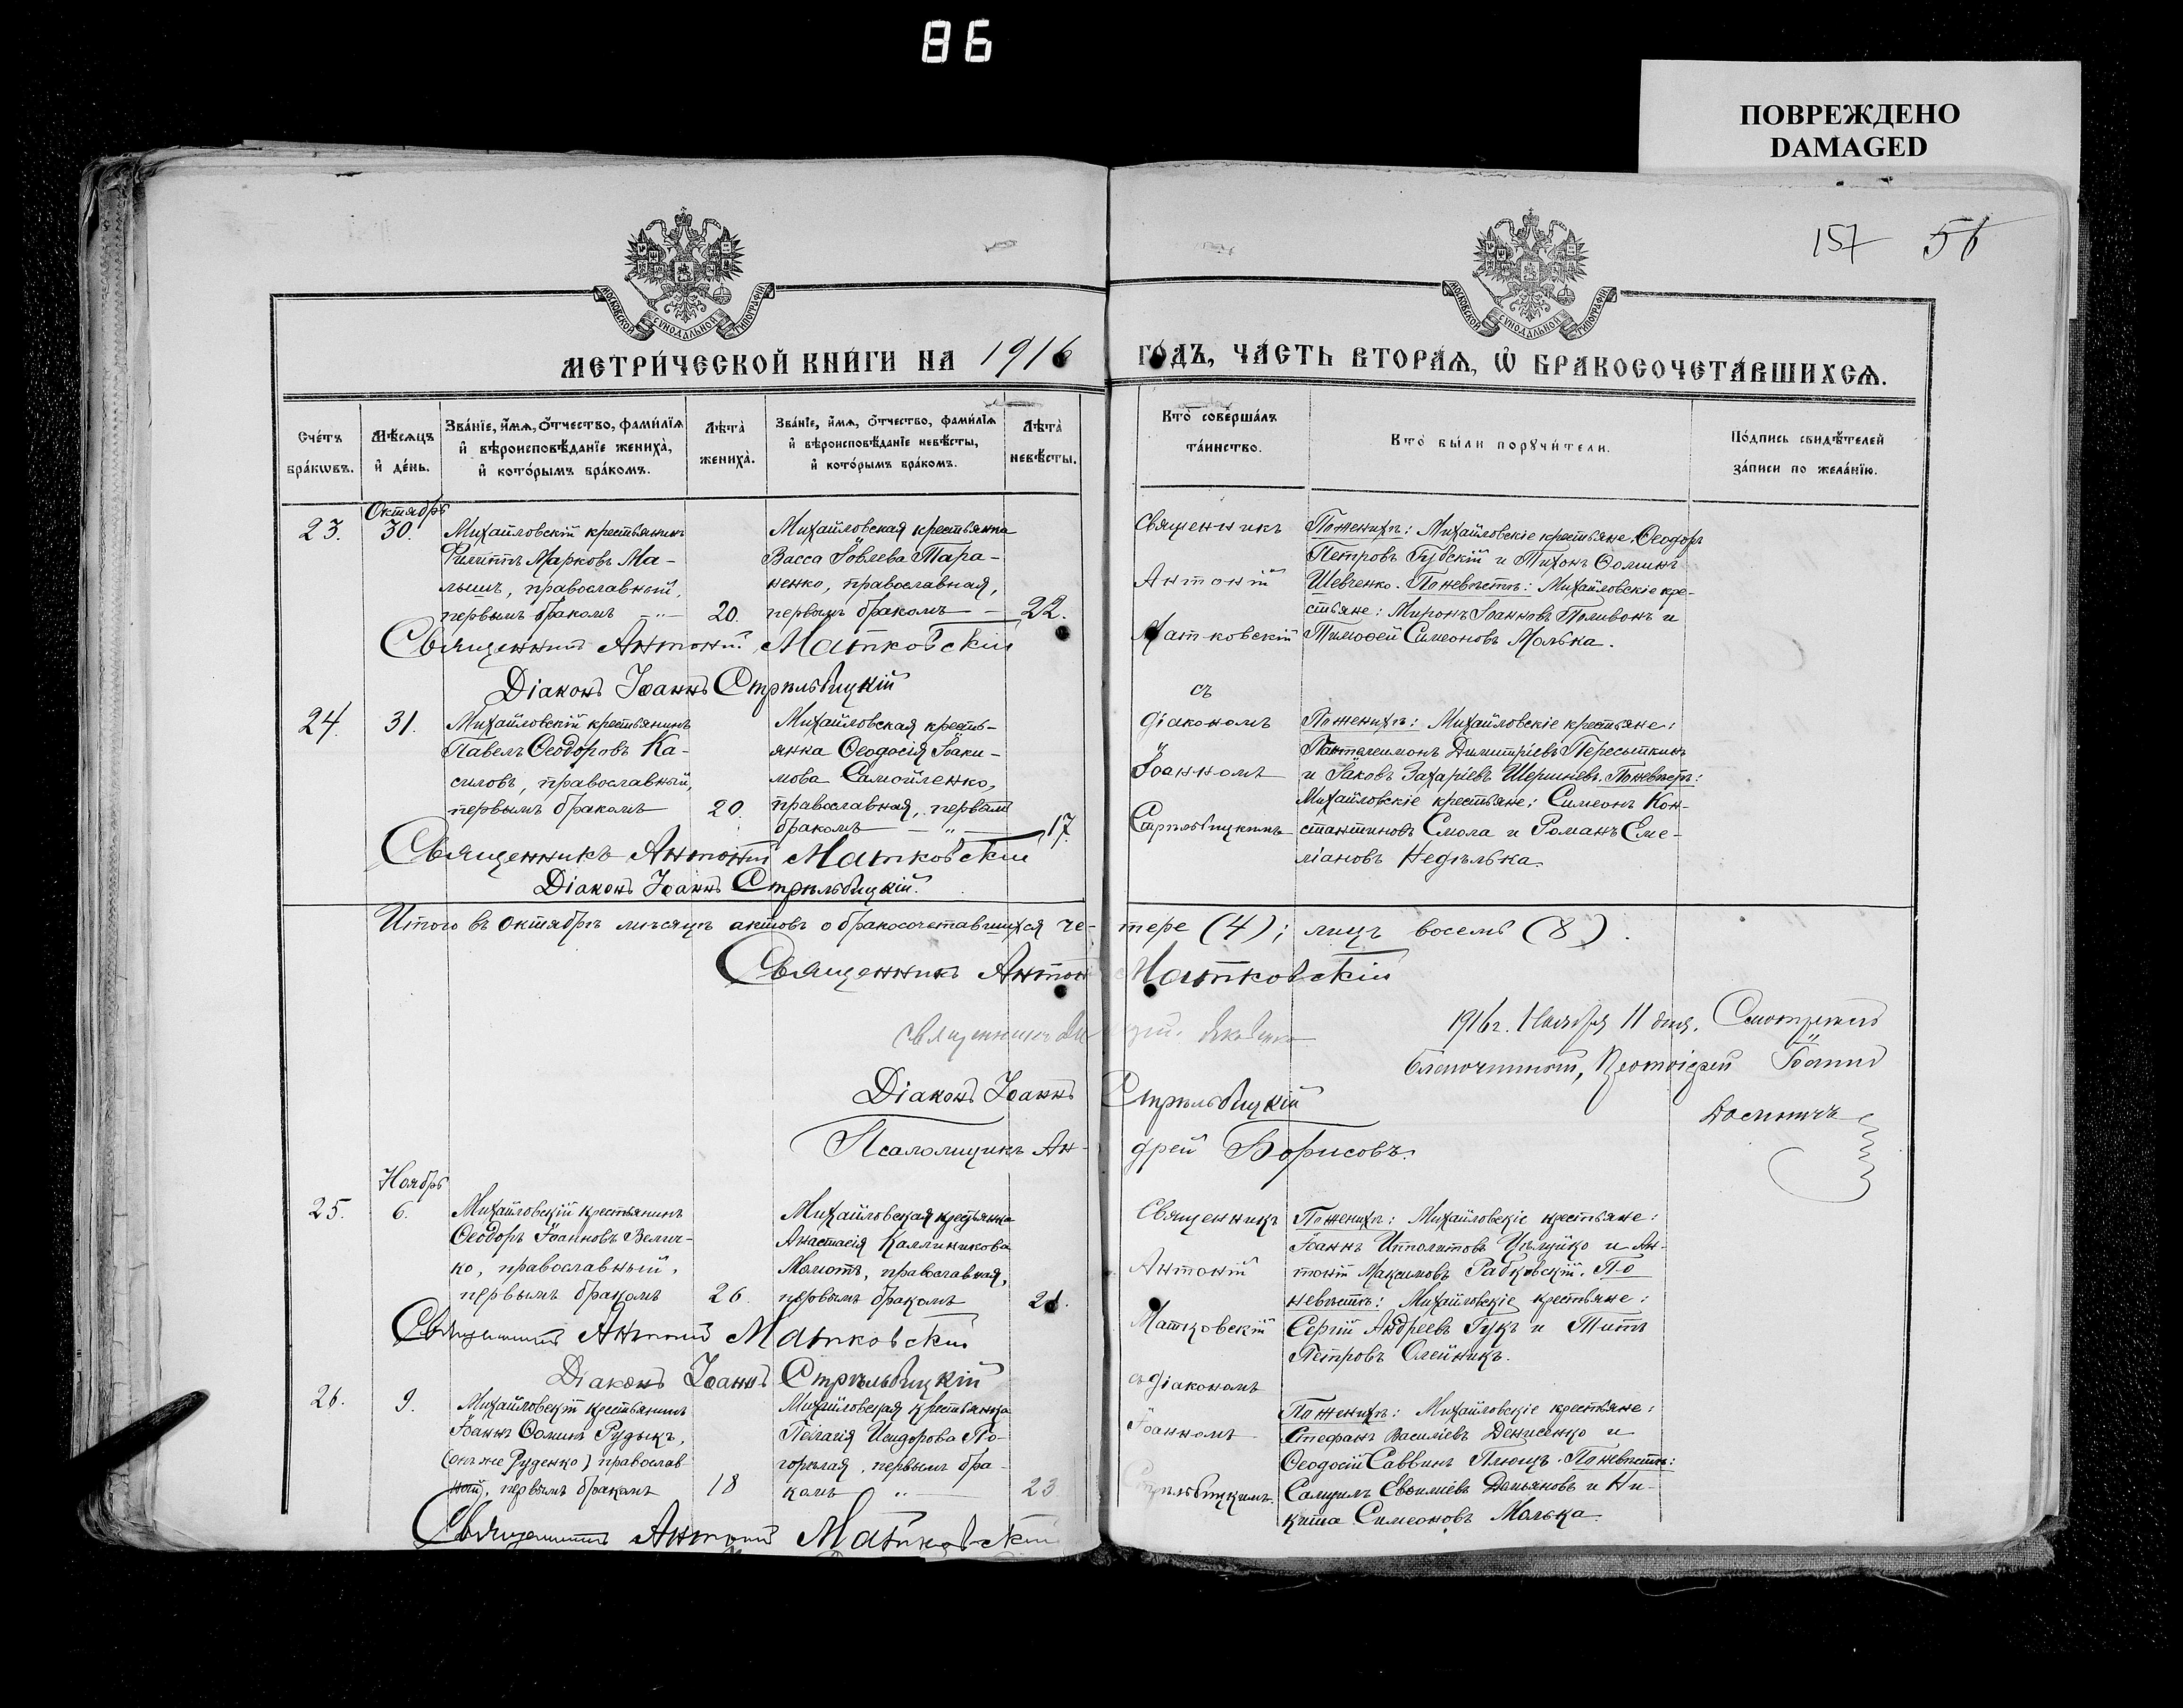 86
ПОВРЕЖДЕНО
DAMAGED
157 56
МОСКОВСКОЙ СѴНОДАЛЬНОЙ ТИПОГРАФІИ
МОСКОВСКОЙ СѴНОДАЛЬНОЙ ТИПОГРАФІИ
МЕТРИ́ЧЕСКОЙ КНИ́ГИ НА 1916 ГО́ДЪ, ЧА́СТЬ ВТОРА́Ѧ, Ѽ БРАКОСОЧЕТА́ВШИХСѦ.
Сче́тъ
бра́кѡвъ.
Мѣ́сяцъ
и҆ де́нь.
Зва́нїе, и҆́мѧ, ѻ҆́тчество, фами́лїѧ
и҆ вѣроисповѣ́данїе жениха̀,
и҆ кото́рымъ бра́комъ.
Лѣта̀
жениха̀.
Зва́нїе, и҆́мѧ, ѻ҆́тчество, фами́лїѧ
и҆ вѣроисповѣ́данїе невѣ́сты,
и҆ кото́рымъ бра́комъ.
Лѣта̀
невѣ́сты.
Кто̀ соверша́лъ
та́инство.
Кто̀ бы́ли порꙋчи́тели.
По́дпись свидѣ́телей
за́писи по жела́нїю.
Октябрь
23. 30.
Михайловскій крестьянинъ
Филиппъ Марковъ Ма-
лышъ, православный,
первымъ бракомъ 20.
Михайловская крестьянка
Васса Іовлева Тара-
ненко, православная,
первымъ бракомъ 22.
Священникъ
Антоній
Матковскій
съ
діакономъ
Іоанномъ
Стрѣльбицкимъ
По женихѣ: Михайловскіе крестьяне Ѳеодоръ
Петровъ Губскій и Тихонъ Ѳоминъ
Шевченко. По невѣстѣ: Михайловскіе кре-
стьяне: Миронъ Іоанновъ Поливонъ и
Тимоѳей Симеоновъ Молька.
Священникъ Антоній Матковскій
Діаконъ Іоаннъ Стрѣльбицкій
24. 31.
Михайловскій крестьянинъ
Павелъ Ѳеодоровъ Ка-
силовъ, православный,
первымъ бракомъ 20.
Михайловская кресть-
янка Ѳеодосія Іоаки-
мова Самойленко,
православная, первымъ
бракомъ 17.
По женихѣ: Михайловскіе крестьяне:
Пантелеимонъ Димитріевъ Пересыпкинъ
и Іаковъ Захаріевъ Шершневъ. По невѣстѣ:
Михайловскіе крестьяне: Симеонъ Кон-
стантиновъ Смола и Романъ Еме-
ліановъ Недѣлька.
Священникъ Антоній Матковскій
Діаконъ Іоаннъ Стрѣльбицкій.
Итого въ октябрѣ мѣсяцѣ актовъ о бракосочетавшихся че-тере (4); лицъ восемь (8).
Священникъ Антоній Матковскій
1916 г. Ноября 11 дня. Смотрѣлъ
Благочинный, Протоіерей Іоаннъ
священникъ
Діаконъ Іоаннъ Стрѣльбицкій
Псаломщикъ Ан-дрей Борисовъ.
Ноябрь
25. 6.
Михайловскій крестьянинъ
Ѳеодоръ Іоанновъ Велич-
ко, православный,
первымъ бракомъ 26.
Михайловская крестьянка
Анастасія Каллиникова
Молотъ, православная,
первымъ бракомъ 21.
Священникъ
Антоній
Матковскій
съ діакономъ
Іоанномъ
Стрѣльбицкимъ.
По женихѣ: Михайловскіе крестьяне:
Іоаннъ Ипполитовъ Цѣлуйко и Ан-
тоній Максимовъ Рабковскій. По
невѣстѣ: Михайловскіе крестьяне:
Сергій Андреевъ Гукъ и Титъ
Петровъ Олейникъ.
Священникъ Антоній Матковскій
Діаконъ Іоаннъ Стрѣльбицкій
26. 9.
Михайловскій крестьянинъ
Іоаннъ Ѳоминъ Рудыкъ,
(онъ же Руденко) православ
ный, первымъ бракомъ 18
Михайловская крестьянка
Пелагія Исидорова По-
горѣлая, первымъ бра-
комъ 23
По женихѣ: Михайловскіе крестьяне:
Стефанъ Василіевъ Денисенко и
Ѳеодосій Саввинъ Плющъ. По невѣстѣ:
Самуилъ Евѳиміевъ Демьяновъ и Ни-
кита Симеоновъ Молька.
Священникъ Антоній Матковскій